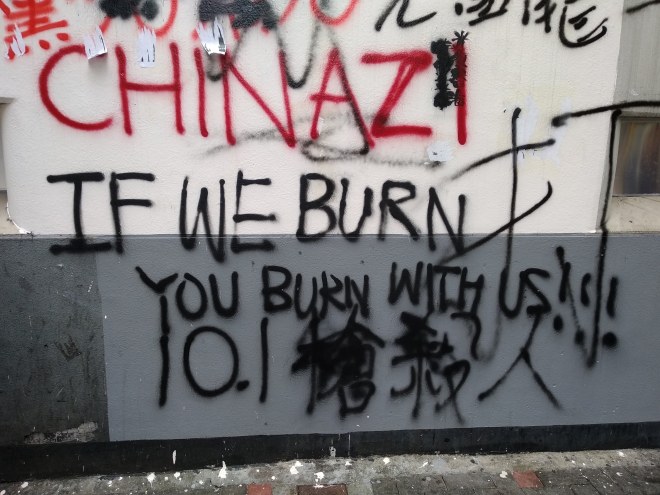 黑
CHINAZI
IF WE BURN 打
YOU BURN WITH US!!!
10.1 槍殺人